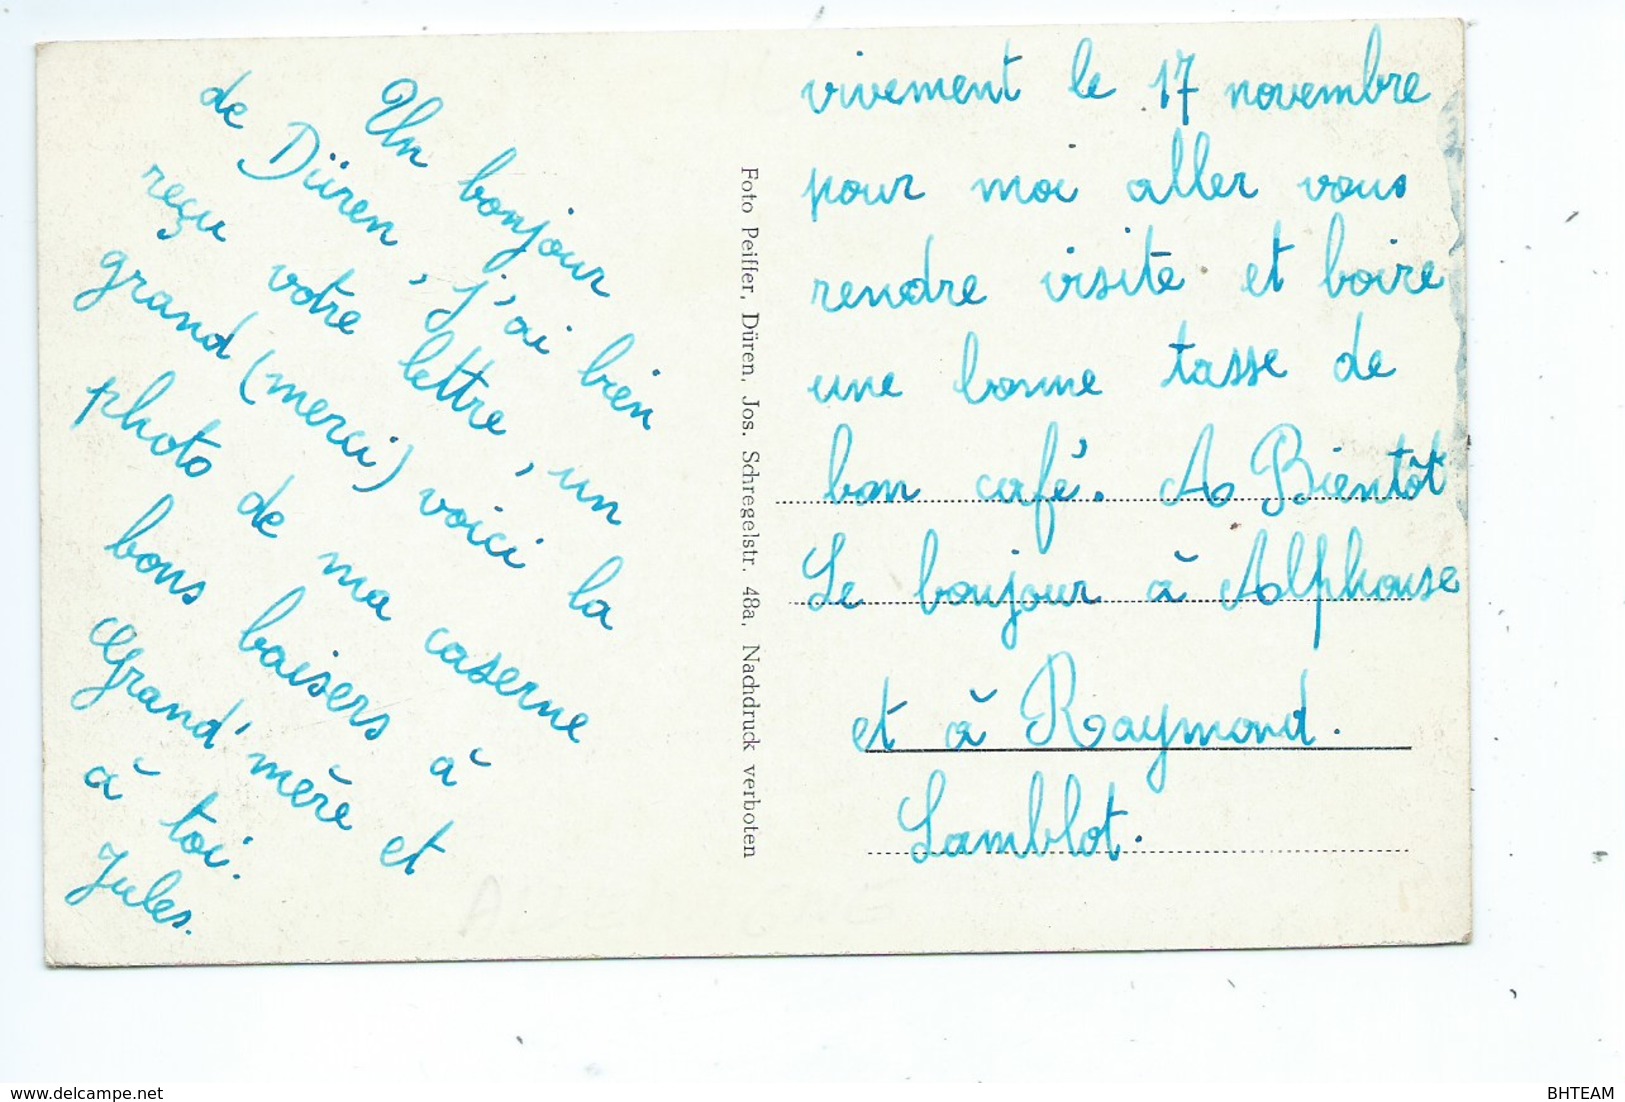 Un bonjour
de Düren, j'ai bien
reçu votre lettre, un
grand (merci) voici la
photo de ma caserne
bons baisers à
Grand'mère et
à toi.
Jules.
Foto Peiffer, Düren, Jos. Schregelstr. 48a, Nachdruck verboten
vivement le 17 novembre
pour moi aller vous
rendre visite et boire
une bonne tasse de
bon café. A Bientôt
Le bonjour à Alphonse
et à Raymond.
Lamblot.
www.delcampe.net
BHTEAM